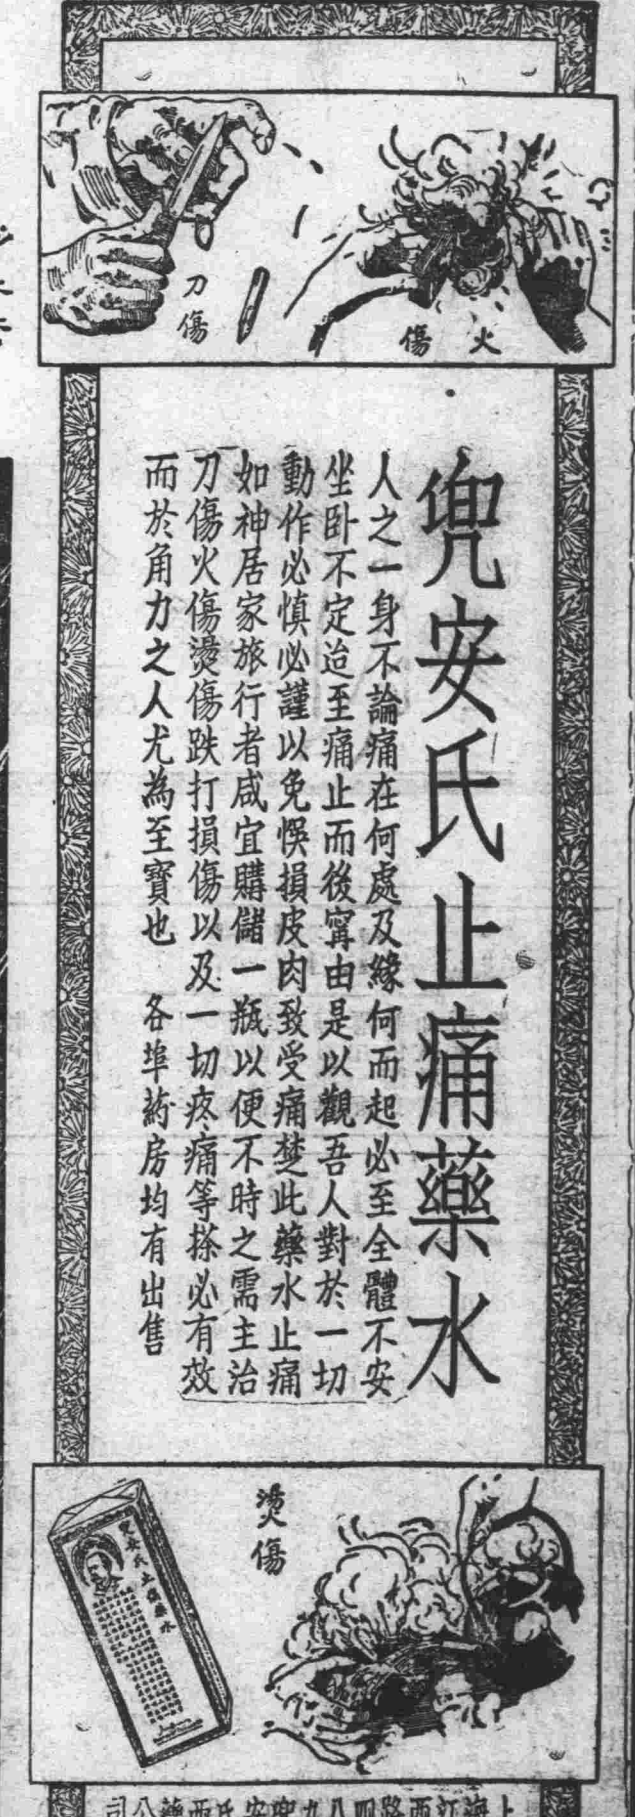 刀傷
火傷
兜安氏止痛藥水
人之一身不論痛在何處及緣何而起必至全體不安
坐卧不定迨至痛止而後甯由是以觀吾人對於一切
動作必慎必謹以免悞損皮肉致受痛楚此藥水止痛
如神居家旅行者咸宜購儲一瓶以便不時之需主治
刀傷火傷燙傷跌打損傷以及一切疼痛等搽必有效
而於角力之人尤為至寶也 各埠葯房均有出售
燙傷
兜安氏止痛藥水
上海江西路四八九兜安氏西藥公司